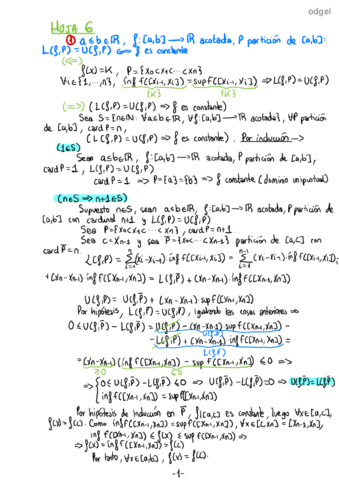 odgei
HOJA 6
① a≤b∈ℝ, f:[a,b]→ℝ acotada, P partición de [a,b]:
L(f,P) = U(f,P) ⟺ f es constante
(⇐)
f(x)=K, P={x₀<x₁<⋯<xn}
∀i∈{1,…,n}, inf f([xi-1,xi]) = sup f([xi-1,xi]) ⇒ L(f,P)=U(f,P)
{K} {K}
(⇒) (L(f,P)=U(f,P) ⇒ f es constante)
Sea S={n∈ℕ: ∀a≤b∈ℝ, ∀f:[a,b]→ℝ acotada, ∀P partición
de [a,b], card P=n,
(L(f,P)=U(f,P) ⇒ f es constante). Por inducción →
(1∈S)
Sean a≤b∈ℝ, f:[a,b]→ℝ acotada, P partición de [a,b],
card P=1, L(f,P)=U(f,P)
card P=1 ⇒ P={a}={b} ⇒ f constante (dominio unipuntual)
(n∈S ⇒ n+1∈S)
Supuesto n∈S, sean a≤b∈ℝ, f:[a,b]→ℝ acotada, P partición de
[a,b] con cardinal n+1 y L(f,P)=U(f,P)
Sea P={x₀<x₁<⋯<xn}, card P=n+1
Sea c=xn-1 y sea P̄={x₀<⋯<xn-1} partición de [a,c] con
card P̄=n.
L(f,P)=Σ(xi-xi-1)·inf f([xi-1,xi])=Σ(xi-xi-1)·inf f([xi-1,xi])+
+(xn-xn-1)·inf f([xn-1,xn]) = L(f,P̄)+(xn-xn-1)·inf f([xn-1,xn])
U(f,P)=U(f,P̄)+(xn-xn-1)·sup f([xn-1,xn])
Por hipótesis, L(f,P)=U(f,P), igualando las cosas anteriores ⇒
0≤U(f,P̄)-L(f,P̄)=U(f,P)-(xn-xn-1)·sup f([xn-1,xn])-
U(f,P̄)
-L(f,P)+(xn-xn-1)·inf f([xn-1,xn])=
L(f,P̄)
=(xn-xn-1)(inf f([xn-1,xn])-sup f([xn-1,xn])≤0 ⇒
≥0 ≤0
⇒{0≤U(f,P̄)-L(f,P̄)≤0 ⇒ U(f,P̄)-L(f,P̄)=0 ⇒ U(f,P̄)=L(f,P̄)
inf f([xn-1,xn])=sup f([xn-1,xn])
Por hipótesis de inducción en P̄, f|[a,c] es constante, luego ∀x∈[a,c],
f(x)=f(c). Como inf f([xn-1,xn])=sup f([xn-1,xn]), ∀x∈[c,xn]=[xn-1,xn],
inf f([xn-1,xn])≤f(x)≤sup f([xn-1,xn]) ⇒
⇒ f(x)=inf f([xn-1,xn])=f(c)
Por tanto, ∀x∈[a,b], f(x)=f(c).
-1-